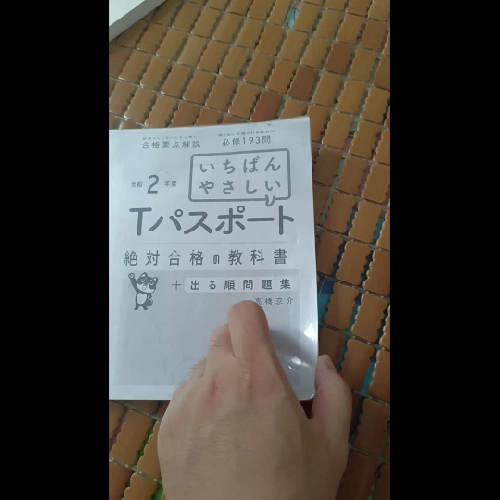 合格要点解説 必修193問
いちばん
やさしい
令和2年度
Tパスポート
絶対合格の教科書
+出る順問題集
高橋京介